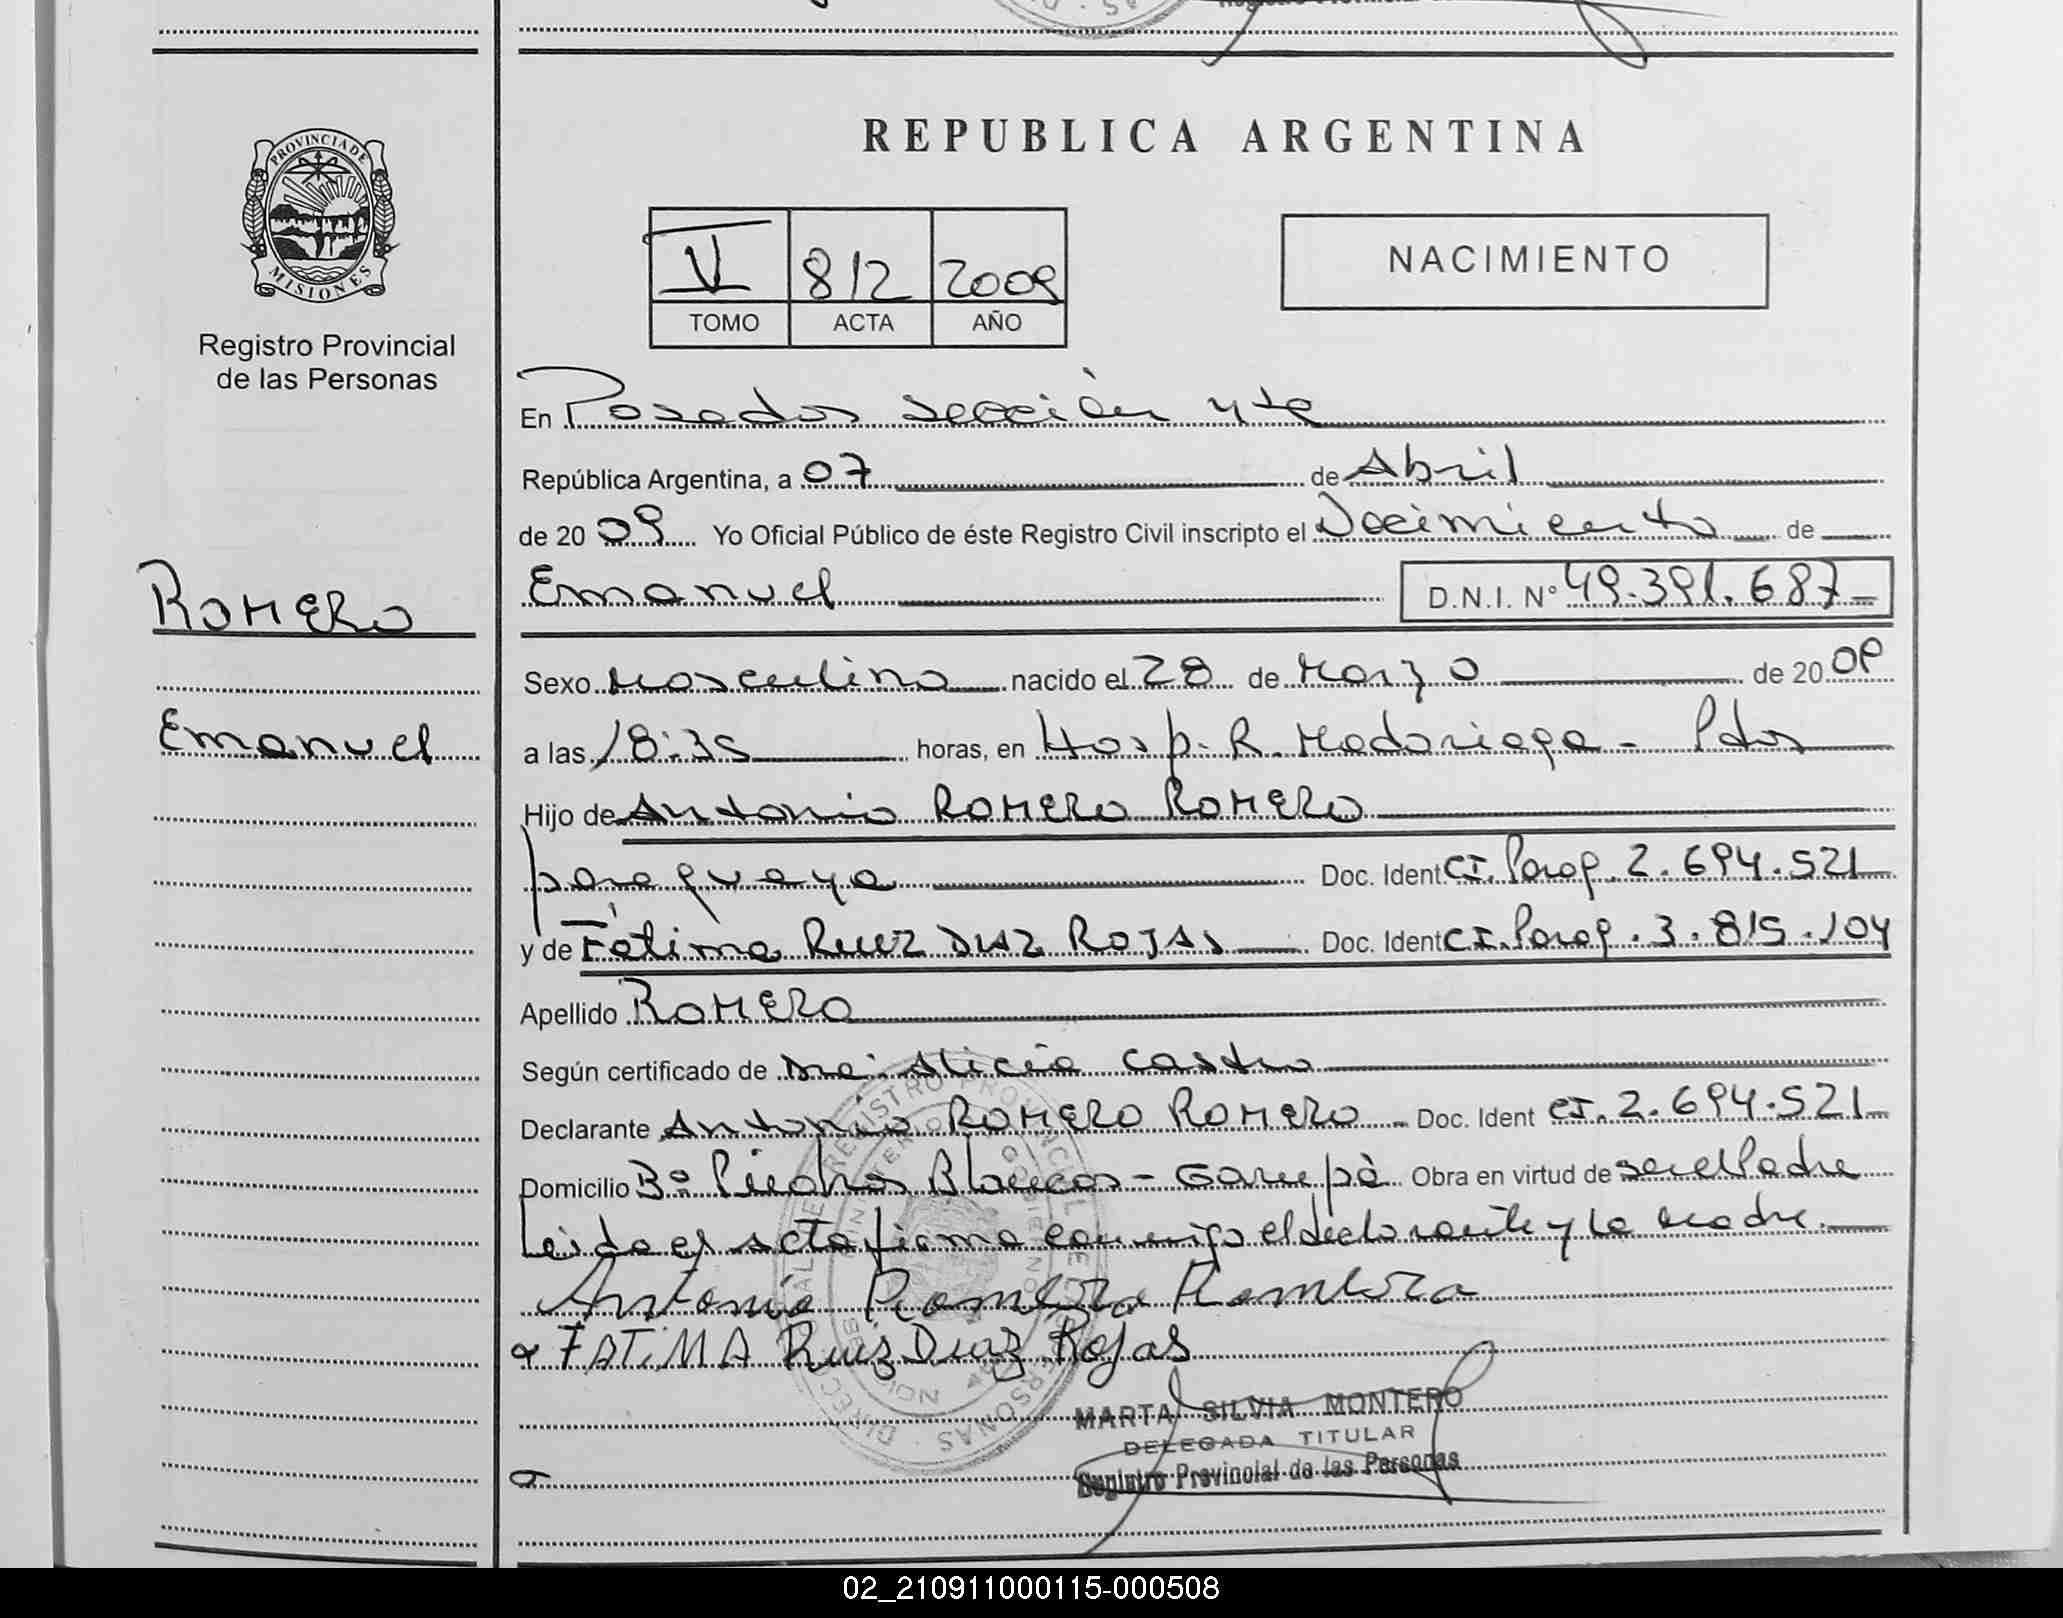 REPUBLICA ARGENTINA
PROVINCIA DE
MISIONES
Registro Provincial
de las Personas
V 812 2009
TOMO ACTA AÑO
NACIMIENTO
En Posadas sección 4ta
República Argentina, a 07 de Abril
de 20 09 Yo Oficial Público de éste Registro Civil inscripto el Nacimiento de
ROMERO
Emanuel D.N.I. N° 49.391.687
Sexo Masculino nacido el 28 de Marzo de 20 09
Emanuel
a las 18:35 horas, en Hosp. R. Madariaga - Pdas
Hijo de Antonio ROMERO ROMERO
paraguaya Doc. Ident CI. Parag. 2.694.521
y de Fátima RUIZ DIAZ ROJAS Doc. Ident CI. Parag. 3.815.104
Apellido ROMERO
Según certificado de Dra. Alicia Castro
Declarante Antonio ROMERO ROMERO - Doc. Ident CI. 2.694.521
Domicilio B° Piedras Blancas - Garupá Obra en virtud de ser el Padre
Leida el acta firma conmigo el declarante y la madre.
Antonio Romero Romero
FATIMA Ruiz Diaz Rojas
MARTA SILVIA MONTERO
DELEGADA TITULAR
Registro Provincial de las Personas
02_210911000115-000508